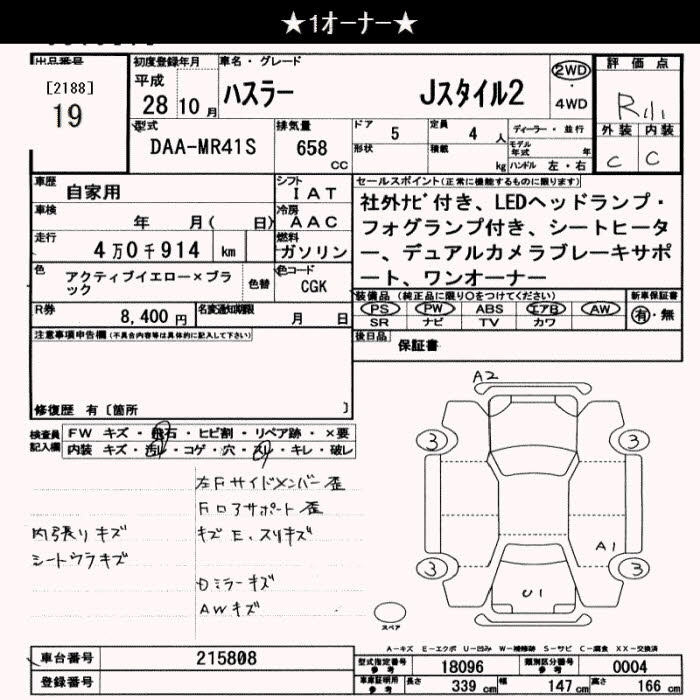 ★1オーナー★
出品番号
[2188]
19
初度登録年月
平成
28 10 月
車名・グレード
ハスラー Jスタイル2
2WD
・
4WD
評価点
R
外装 内装
C C
型式
DAA-MR41S
排気量
658 CC
ドア 5
定員 4 人
ディーラー・並行
形状
積載 kg
モデル年式 年
ハンドル 左・右
車歴 自家用
車検 年 月( 日)
走行 4万0千914 km
シフト IAT
冷房 AAC
燃料 ガソリン
色 アクティブイエロー×ブラック
色替
色コード CGK
R券 8,400 円
名変通知期限 月 日
セールスポイント(正常に機能するものに限ります)
社外ナビ付き、LEDヘッドランプ・
フォグランプ付き、シートヒータ
ー、デュアルカメラブレーキサポ
ート、ワンオーナー
装備品 (純正品に限り○をつけてください)
PS PW ABS エアB AW
SR ナビ TV カワ
新車保証書
有・無
後日品 保証書
注意事項申告欄(不具合内容等は具体的に記入して下さい)
修復歴 有〔箇所 〕
検査員記入欄
FW キズ・飛石・ヒビ割・リペア跡・×要
内装 キズ・汚レ・コゲ・穴・スレ・キレ・破レ
左Fサイドメンバー歪
Fロアサポート歪
内張りキズ
キズE、スリキズ
シートウラキズ
Dミラーキズ
AWキズ
A2
3 3
A1
3 3
U1
スペア
A-キズ E-エクボ U-凹み W-補修跡 S-サビ C-腐食 XX-交換済
車台番号 215808
登録番号
型式指定番号 参考 18096
類別区分番号 参考 0004
車庫証明用 参考
長さ 339 cm
幅 147 cm
高さ 166 cm